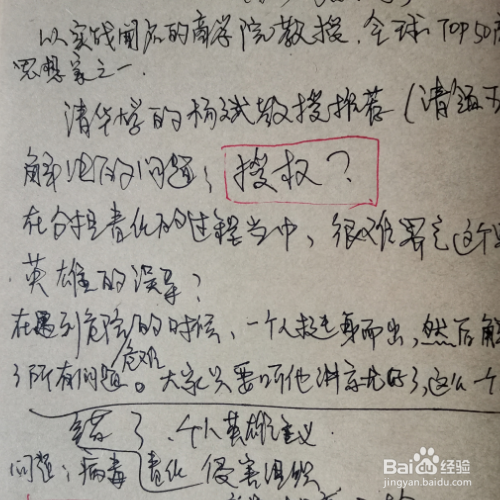 以实战闻名的商学院教授,全球TOP50
思想家之一.
清华大学的杨斌教授推荐(清
解决的问题:授权?
在分担责任的过程当中、很难界定这个
英雄的误导?
在遇到危险的时候、一个人挺身而出,然后解
危难
了所有问题。大家只要听他讲就好了,这么一个
错了、个人英雄主义.
问题:病毒 责任 侵害组织
Baidu经验
jingyan.baidu.com